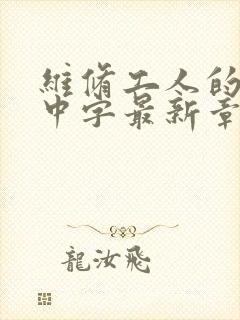 維修工人的
中字最新章
龍汝飛